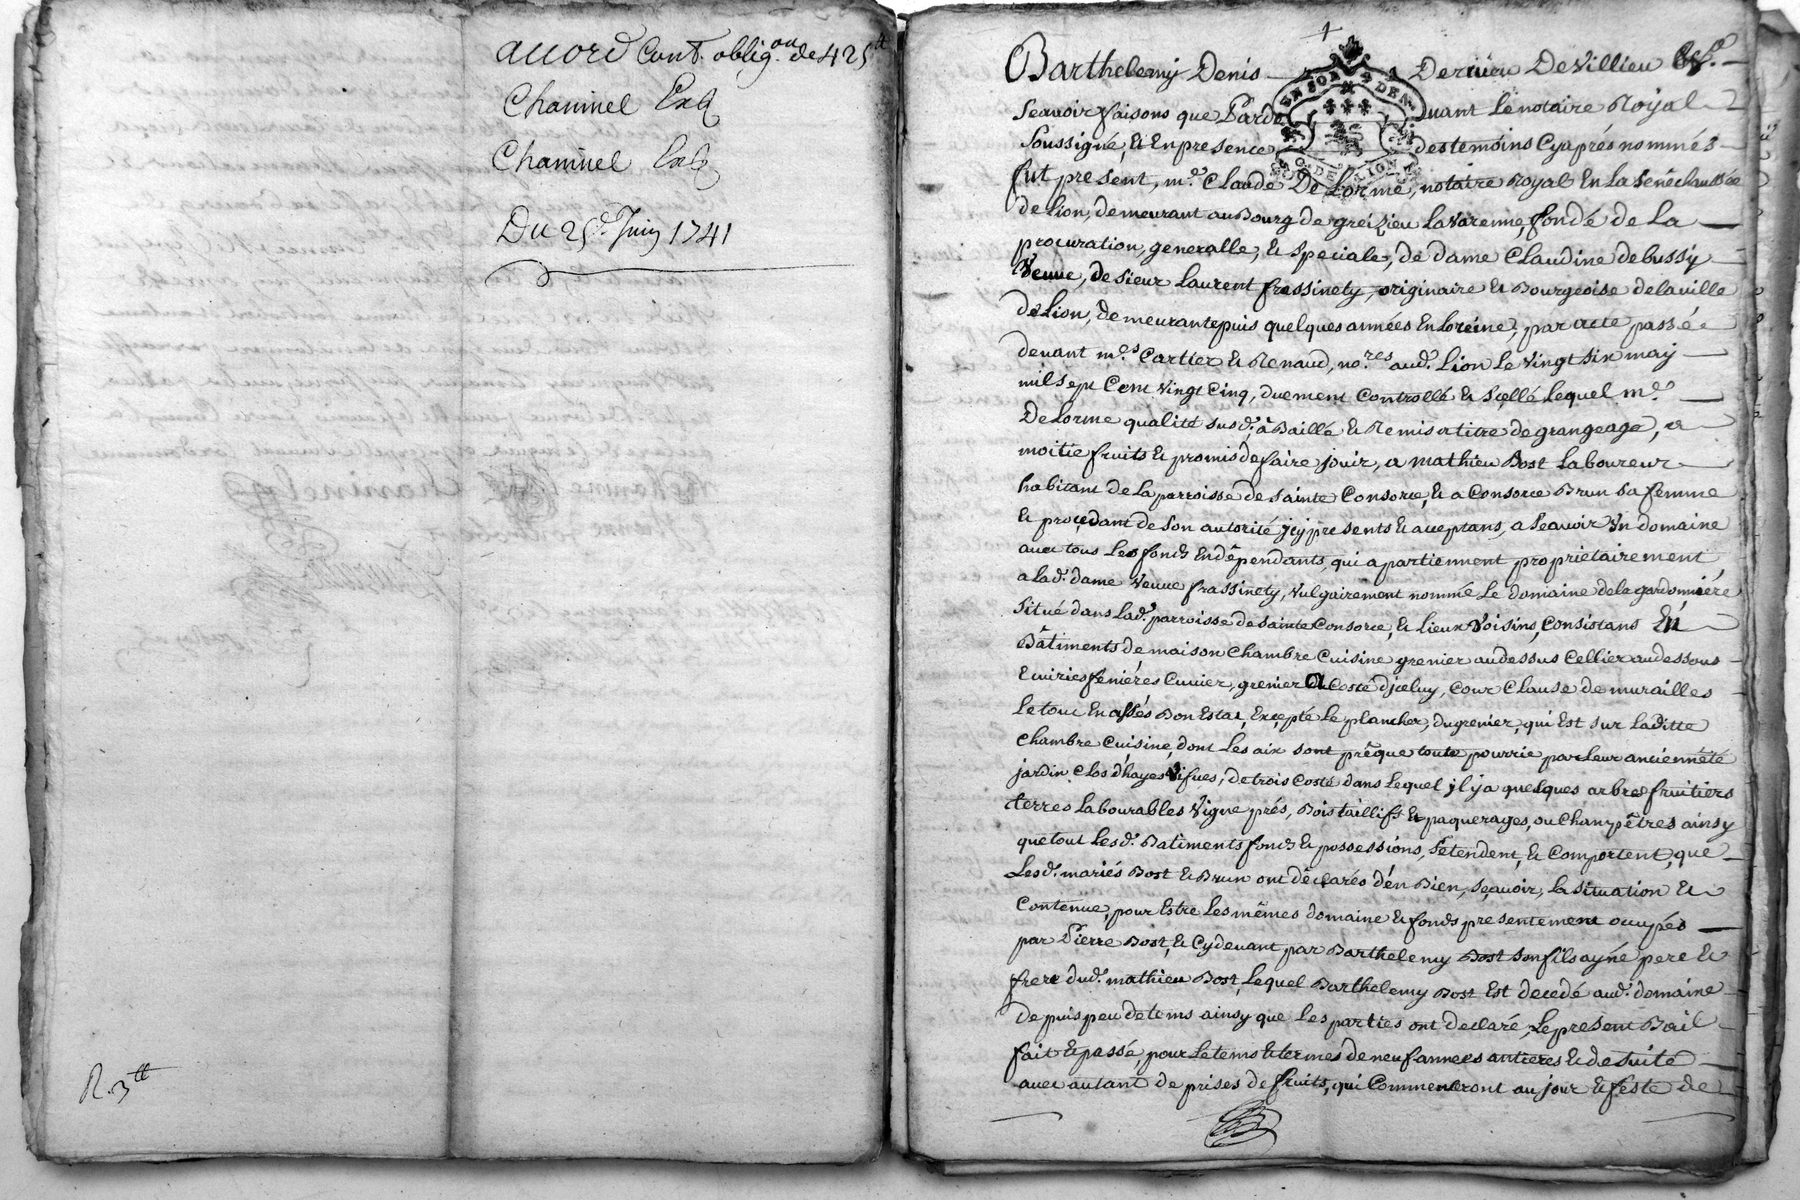 accord Cont. oblig.on de 425 tt
Chaninel Exp
Chaninel Exp
Du 25e. Juin 1741
R. 3 tt
1
Barthelemy Denis Derieu De Villieu
Scavoir faisons que Pardevant Le notaire Royal
Soussigné, et En presence des temoins Cyaprés nommés
fut present, me. Claude De Lorme, notaire Royal En La Senéchaussée
de Lion, demeurant au Bourg de greizieu Lavarenne, fondé de La
procuration, generalle, et speciale, de dame Claudine debussy
Veuve, de sieur Laurent frassinety, originaire et Bourgeoise de la ville
de Lion, demeurante puis quelques années En Loreine, par acte passée
devant mes. Cartier et Renaud, no.res aud. Lion Le Vingt six may
mil sept Cent Vingt Cinq, duement Controllé et Scellé Lequel me.
DeLorme qualité susd. à Baillé et Remis a titre de grangeage, a
moitie fruits et promis de faire jouir, a mathieu Bost Laboureur
habitant de La parroisse de Sainte Consorce, et a Consorce Brun sa femme
et procedant de son autorité jcy presents et aceptans, a Scavoir Un domaine
avec tous Les fonds En dépendants, qui apartiennent proprietairement
a lad. dame Veuve frassinety, Vulgairement nommé Le domaine de la gardonniére
situé dans Lad. parroisse de Sainte Consorce, et Lieux Voisins, Consistans En
Bâtiments de maison Chambre Cuisine grenier au dessus Cellier au dessous
Ecuiries feniéres Cuvier, grenier a Costé djceluy, Cour Clause de murailles
Le tout En assés Bon Estat, Excepté Le plancher, du grenier, qui Est sur Laditte
Chambre Cuisine, dont Les aix sont prêque toute pourrie par Leur anciennété
jardin Clos d'hayes Vifues, de trois Costé dans Lequel jl ja quelques arbres fruitiers
terres Labourables Vigne prés, Bois taillifs et paquerages, ou Champêtres ainsy
que tout Lesd. Batiments fonds et possessions, S'étendent, et Comportent, que
Lesd. mariés Bost et Brun ont déclarés d'en Bien, Sçavoir, la situation et
Contenue, pour Estre Les mêmes domaine et fonds presentement ocupés
par Pierre Bost, et Cydevant par Barthelemy Bost son fils ayné pere et
frere dud. mathieu Bost, Lequel Barthelemy Bost Est decedé aud. domaine
depuis peu de tems ainsy que Les parties ont declaré, Le present Bail
fait et passé, pour Le tems et termes de neuf annees antieres et de suite
avec autant de prises de fruits, qui Commenceront au jour et feste de